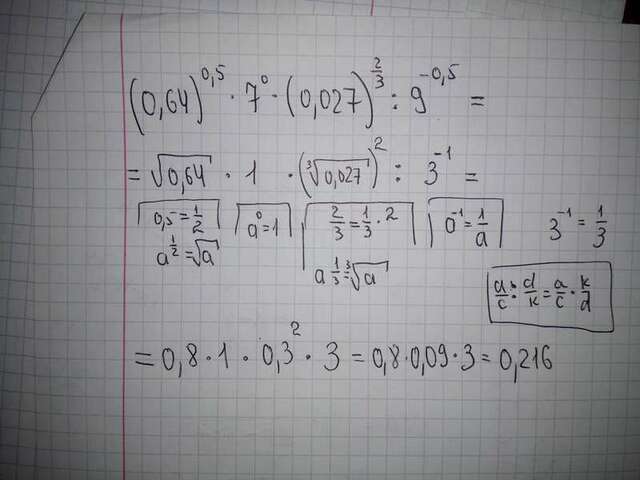 (0,64)^{0,5} · 7^0 · (0,027)^{\frac{2}{3}} : 9^{-0,5} =
= √0,64 · 1 · (∛0,027)^2 : 3^{-1} =
0,5 = 1/2 a^0 = 1 2/3 = 1/3 · 2 a^{-1} = 1/a 3^{-1} = 1/3
a^{1/2} = √a a^{1/3} = ∛a
a/c : d/k = a/c · k/d
= 0,8 · 1 · 0,3^2 · 3 = 0,8 · 0,09 · 3 = 0,216